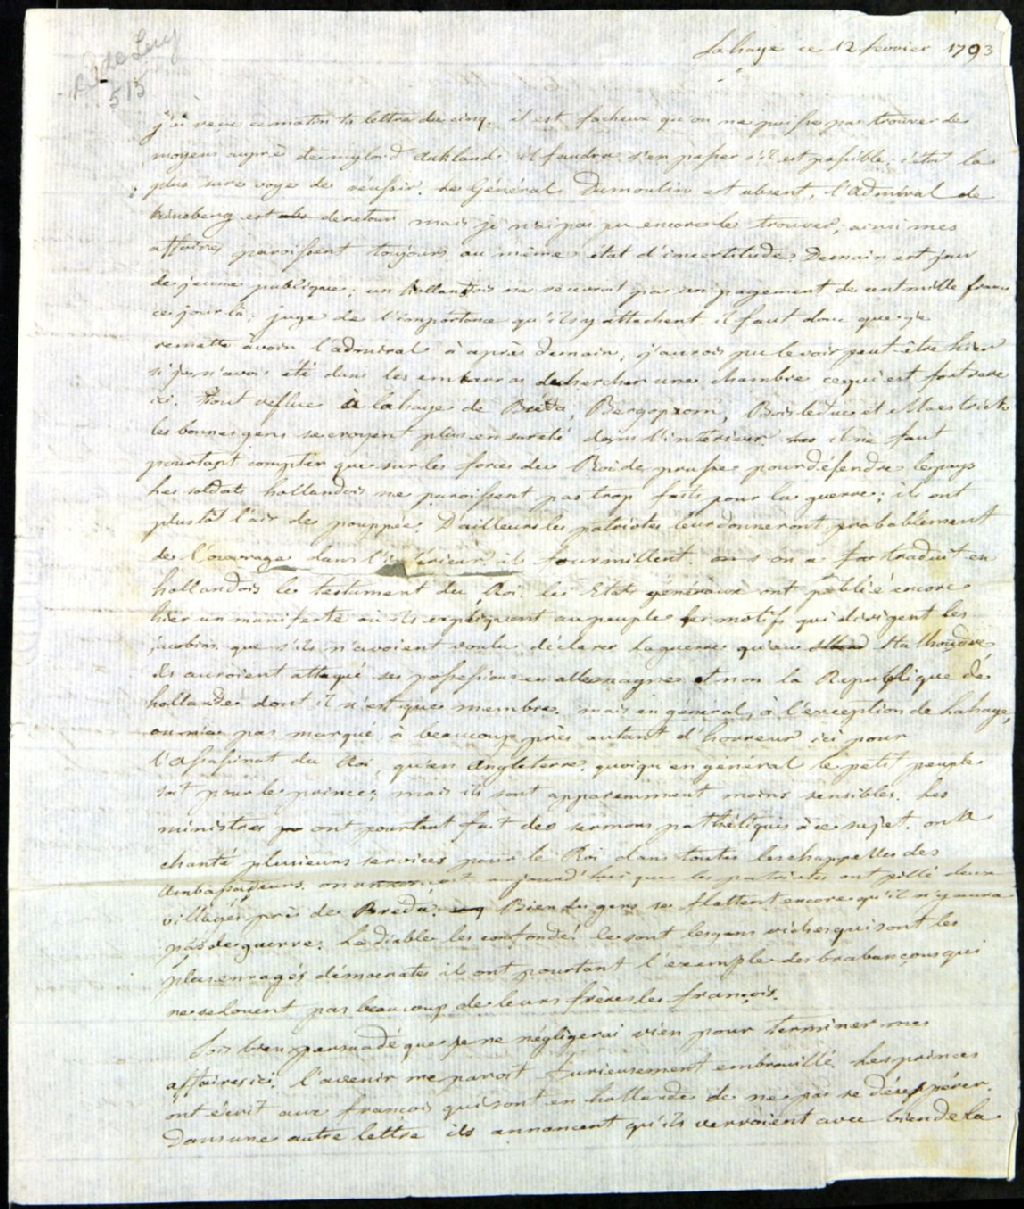 515
Lahaye ce 12 fevrier 1793
j'ai recu ce matin ta lettre du cinq. il est facheux qu'on ne puisse pas trouver de
moyens auprè de mylord Aukland. il faudra s'en passer s'il est possible, c'étoit la
plus sure voye de réussir. Le Général Dumoulin est absent, l'admiral de
Kinsberg est de retour mais je n'ai pas pu encore le trouver, ainsi mes
affaires paroissent toujours au même état d'incertitude. Demain est jour
de jeune publique; un hollandois ne recevroit pas un payement de cent mille francs
ce jour là; juge de l'importance qu'ils y attachent. il faut donc que je
remette à voir l'admiral à après demain, j'aurois pu le voir peut-être hier
si je n'avois été dans les embaras de chercher une chambre ce qui est fort rare
ici. Tout reflue à Lahaye de Bréda, Bergopzom, Boisleduc et Maestrick
les bonnes gens se croyent plus en sureté dans l'intérieur. il ne faut
pourtant compter que sur les forces du Roi de prusse pour défendre le pays
les soldats hollandois ne paroissent pas trop faits pour la guerre; ils ont
plustôt l'air de pouppée. D'ailleurs les patriotes leur donneront probablement
de l'ouvrage dans l'intérieur, ils fourmillent. on a traduit en
hollandois le testament du Roi, les Etats généraux ont publié encore
hier un manifeste où ils expliquent au peuple les motifs qui dirigent les
jacobins, que s'ils n'avoient voulu déclarer la guerre qu'au Stathoudre
ils auroient attaqué ses possessions en allemagne et non la Republique de
hollande dont il n'est que membre. mais en général, à l'exception de Lahaye,
on n'a pas marqué à beaucoup près autant d'horreur ici pour
l'assassinat du Roi, qu'en Angleterre. quoiqu'en général le petit peuple
soit pour le prince; mais ils sont apparemment moins sensibles. Les
ministres ont pourtant fait des sermons pathétiques à ce sujet. on a
chanté plusieurs services pour le Roi dans toutes les chappelles des
Ambassadeurs. on aujourd'hui que les patriotes ont pillé deux
villages près de Breda. Bien des gens se flattent encore qu'il n'y aura
pas de guerre. Le diable les confonde! ce sont les gens riches qui sont les
plus enragés démocrates il ont pourtant l'exemple des brabançons qui
ne se louent pas beaucoup de leurs frères les françois.
Sois bien persuadé que je ne négligerai rien pour terminer mes
affaires ici. l'avenir me paroit furieusement embrouillé. Les princes
ont écrit aux françois qui sont en hollande de ne pas se désespérer.
Dans une autre lettre ils annoncent qu'ils verroient avec bien de la